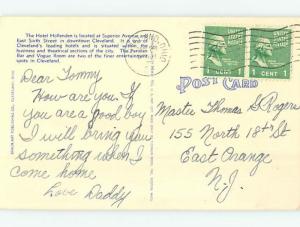 The Hotel Hollenden is located at Superior Avenue and
East Sixth Street in downtown Cleveland. It is one of
Cleveland's leading hotels and is situated within the
business and theatrical sections of the city. The Parisian
Bar and Vogue Room are two of the finer entertainment
spots in Cleveland.
Dear Tommy
How are you If
you are a good boy
I will bring you
something when I
come home
Love Daddy
POST CARD
1 CENT 1
1 CENT 1
Master Thomas S Rogers
155 North 18th St
East Orange
N.J.